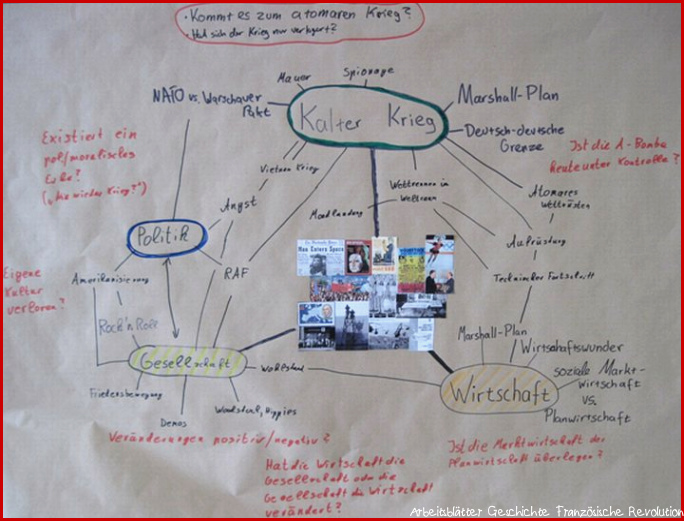 • Kommt es zum atomaren Krieg?
• Hat sich der Krieg nur verlagert?
Mauer
Spionage
NATO vs. Warschauer
Pakt
Kalter Krieg
Marshall-Plan
Deutsch-deutsche
Grenze
Existiert ein
pol/moralisches
Erbe?
("Nie wieder Krieg?")
Ist die A-Bombe
heute unter Kontrolle?
Vietnam Krieg
Wettrennen im
Weltraum
Atomares
Wettrüsten
Angst
Mondlandung
Politik
Aufrüstung
Eigene
Kultur
verloren?
Amerikanisierung
RAF
Technischer Fortschritt
Rock'n Roll
Marshall-Plan
Wirtschaftswunder
Gesellschaft
Wohlstand
soziale Markt-
wirtschaft
vs.
Planwirtschaft
Wirtschaft
Friedensbewegung
Demos
Woodstock, Hippies
Veränderungen positiv/negativ?
Hat die Wirtschaft die
Gesellschaft oder die
Gesellschaft die Wirtschaft
verändert?
Ist die Marktwirtschaft der
Planwirtschaft überlegen?
Arbeitsblätter Geschichte Französische Revolution